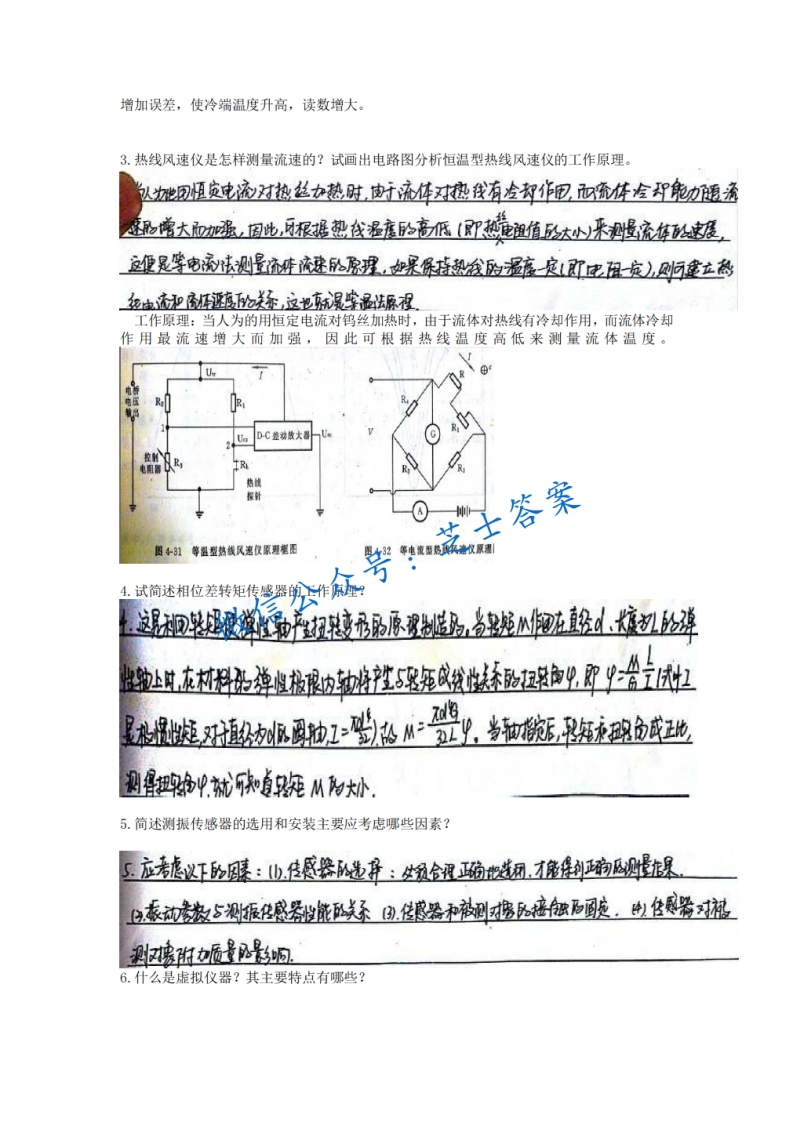 增加误差，使冷端温度升高，读数增大。
3.热线风速仪是怎样测量流速的？试画出电路图分析恒温型热线风速仪的工作原理。
当人为地用恒定电流对热丝加热时,由于流体对热线有冷却作用,而流体冷却能力随流
速的增大而加强,因此,可根据热线温度的高低(即热线电阻值的大小)来测量流体的速度,
这便是等电流法测量流体流速的原理,如果保持热线的温度一定(即电阻一定),则可建立热
线电流和流体速度的关系,这也就是等温法原理.
工作原理：当人为的用恒定电流对钨丝加热时，由于流体对热线有冷却作用，而流体冷却
作用最流速增大而加强，因此可根据热线温度高低来测量流体温度。
电桥电压输出
R₂
R₁
1
2
D-C 差动放大器
控制电阻器
R₃
热线探针
I
图 4-31 等温型热线风速仪原理框图
I
R
R₄
V
G
R₁
R₂
R₃
A
图 4-32 等电流型热线风速仪原理
微信公众号：芝士答案
4.试简述相位差转矩传感器的工作原理？
4.这是利用转矩使弹性轴产生扭转变形的原理制造的,当转矩M作用在直径d、长度为L的弹
性轴上时,在材料的弹性极限内轴将产生与转矩成线性关系的扭转角φ,即 φ=M/G L/I (式中I
是极惯性矩,对于直径为d的圆轴,I=πd⁴/32),故 M=πd⁴G/32L φ。当轴指定后,转矩和扭转角成正比,
测得扭转角φ,就可知道转矩M的大小.
5.简述测振传感器的选用和安装主要应考虑哪些因素？
5.应考虑以下的因素:(1).传感器的选择:必须合理正确地选用,才能得到正确的测量结果.
(2).振动参数与测振传感器性能的关系 (3).传感器和被测对象的接触的固定. (4).传感器对被
测对象附加质量的影响.
6.什么是虚拟仪器？其主要特点有哪些？